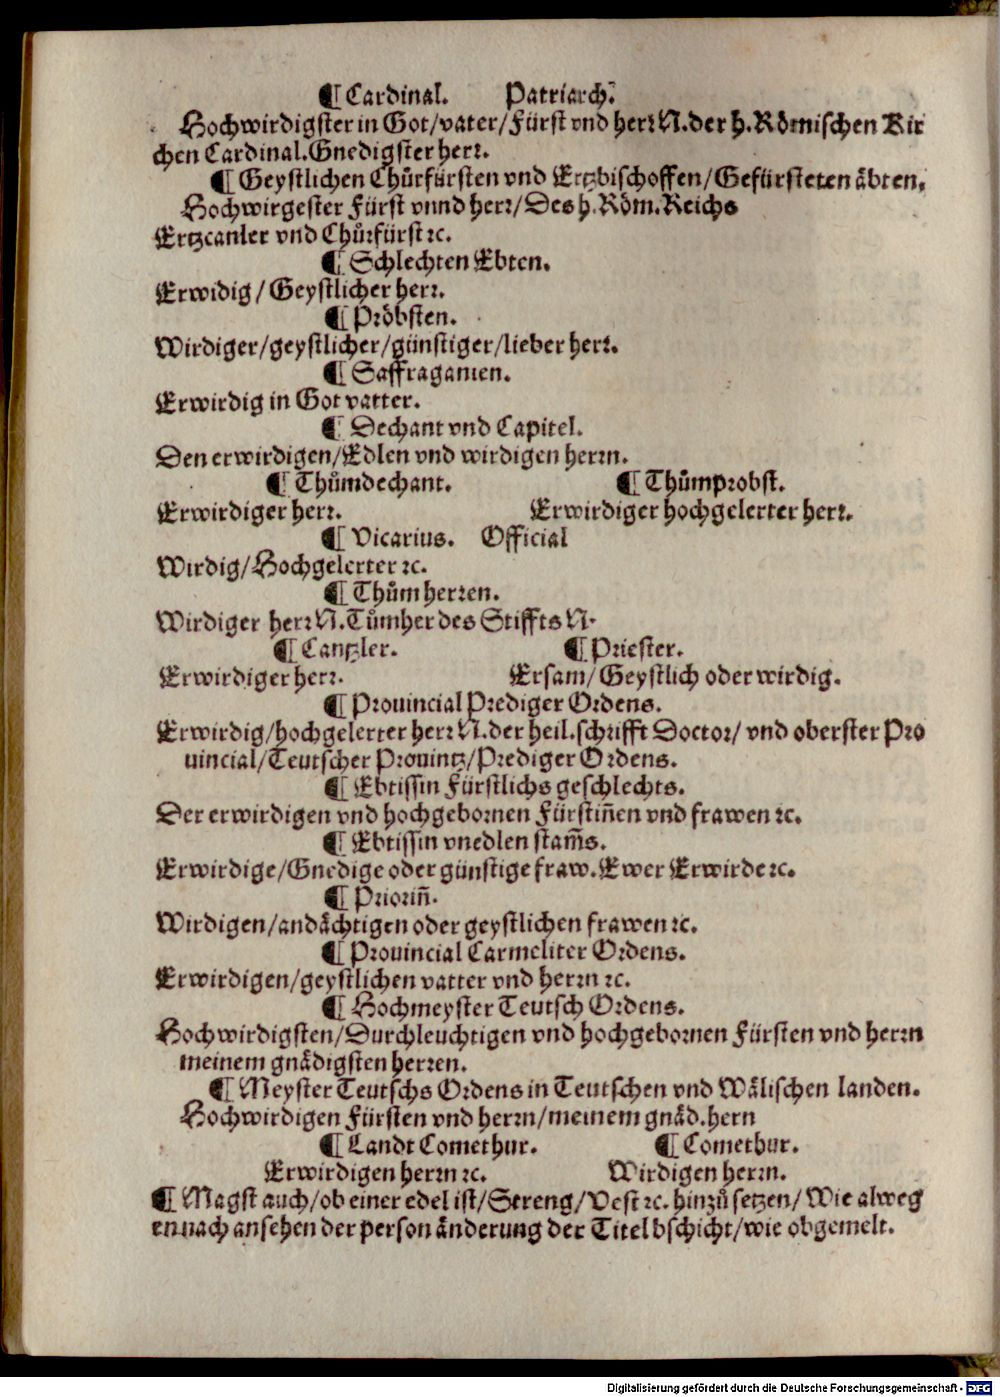 ¶ Cardinal. Patriarch.
Hochwirdigster in Got/vater/Fürst vnd herr N. der h. Römischen Kir
chen Cardinal. Gnedigster herr.
¶ Geystlichen Chůrfürsten vnd Ertzbischoffen/Gefürsteten äbten,
Hochwirgester Fürst vnnd herr/Des h. Röm. Reichs
Ertzcanler vnd Chůrfürst ꝛc.
¶ Schlechten Ebten.
Erwidig/Geystlicher herr.
¶ Pröbsten.
Wirdiger/geystlicher/günstiger/lieber herr.
¶ Saffraganien.
Erwirdig in Got vatter.
¶ Dechant vnd Capitel.
Den erwirdigen/Edlen vnd wirdigen herrn.
¶ Thůmdechant. ¶ Thůmprobst.
Erwirdiger herr. Erwirdiger hochgelerter herr.
¶ Vicarius. Official
Wirdig/Hochgelerter ꝛc.
¶ Thůmherren.
Wirdiger herr N. Tůmher des Stiffts N.
¶ Cantzler. ¶ Priester.
Erwirdiger herr. Ersam/Geystlich oder wirdig.
¶ Prouincial Prediger Ordens.
Erwirdig/hochgelerter herr N. der heil. schrifft Doctor/vnd oberster Pro
uincial/Teutscher Prouintz/Prediger Ordens.
¶ Ebtissin Fürstlichs geschlechts.
Der erwirdigen vnd hochgebornen Fürstiñen vnd frawen ꝛc.
¶ Ebtissin vnedlen stam̃s.
Erwirdige/Gnedige oder günstige fraw. Ewer Erwirde ꝛc.
¶ Prioriñ.
Wirdigen/andächtigen oder geystlichen frawen ꝛc.
¶ Prouincial Carmeliter Ordens.
Erwirdigen/geystlichen vatter vnd herrn ꝛc.
¶ Hochmeyster Teutsch Ordens.
Hochwirdigsten/Durchleuchtigen vnd hochgebornen Fürsten vnd herrn
meinem gnädigsten herren.
¶ Meyster Teutschs Ordens in Teutschen vnd Wälischen landen.
Hochwirdigen Fürsten vnd herrn/meinem gnäd. hern
¶ Landt Comethur. ¶ Comethur.
Erwirdigen herrn ꝛc. Wirdigen herrn.
¶ Magst auch/ob einer edel ist/Streng/Vest ꝛc. hinzů setzen/Wie alweg
en nach ansehen der person änderung der Titel bschicht/wie obgemelt.
Digitalisierung gefördert durch die Deutsche Forschungsgemeinschaft - DFG